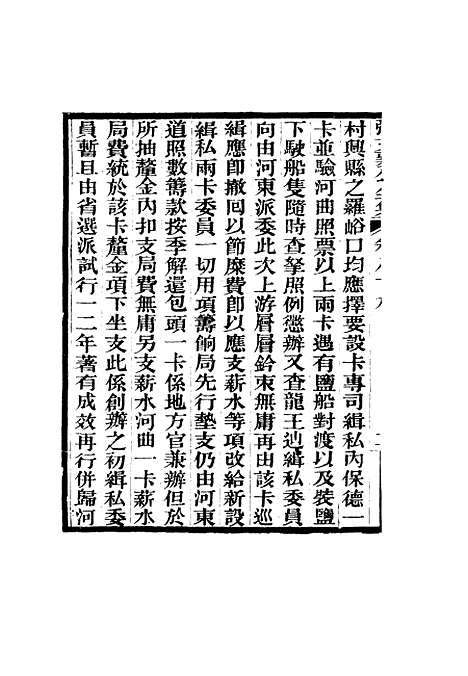 村興縣之羅峪口均應擇要設卡專司緝私內保德一
卡並驗河曲照票以上兩卡遇有鹽船對渡以及裝鹽
下駛船隻隨時查拏照例懲辦又查龍王辿緝私委員
向由河東派委此次上游層層鈐束無庸再由該卡巡
緝應卽撤回以節糜費卽以應支薪水等項改給新設
緝私兩卡委員一切用項籌餉局先行墊支仍由河東
道照數籌款按季解還包頭一卡係地方官兼辦但於
所抽釐金內扣支局費無庸另支薪水河曲一卡薪水
局費統於該卡釐金項下坐支此係創辦之初緝私委
員暫且由省選派試行一二年著有成效再行併歸河